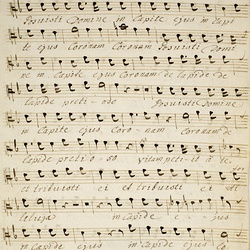 Posuisti Domine in Capite ejus in Capi
te ejus Coronam Coronam Posuisti Domi
ne in Capite ejus Coronam de lapide de
lapide preti ode Posuisti Domine
in Capite ejus, Coro nam coronam de
lapide preti o so vitam peti it a te,
et tribuisti ei et tribuisti ei all
leluja in Capite e jus
in Capite ejus in Capite ejus Co